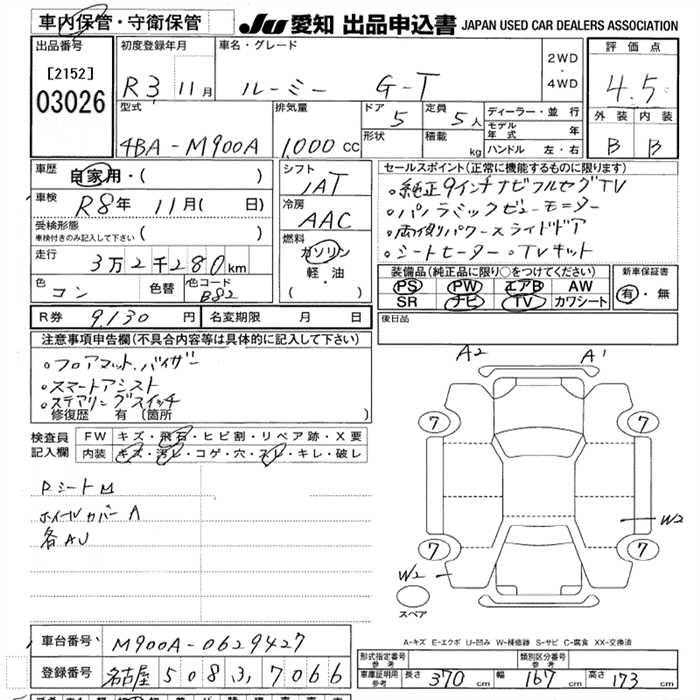 車内保管・守衛保管
JU 愛知 出品申込書 JAPAN USED CAR DEALERS ASSOCIATION
出品番号
[2152]
03026
初度登録年月
R3 11月
車名・グレード
ルーミー G-T
2WD
・
4WD
評価点
4.5
外装 内装
B B
型式
4BA-M900A
排気量
1,000 cc
ドア
5
定員
5人
形状
積載
kg
ディーラー・並行
モデル年式 年
ハンドル 左・右
車歴
自家用・( )
車検
R8年 11月( 日)
受検形態
車検付きのみ記入して下さい ( )
走行
3万2千280km
色
コン
色替
色コード
B82
シフト
IAT
冷房
AAC
燃料
ガソリン
軽・油
( )
セールスポイント(正常に機能するものに限ります)
。純正9インチナビフルセグTV
。パノラミックビューモニター
。両側パワースライドドア
。シートヒーター。TVキット
装備品(純正品に限り○をつけてください)
PS PW エアB AW
SR ナビ TV カワシート
新車保証書
有・無
R券 9,130 円
名変期限 月 日
後日品
注意事項申告欄(不具合内容等は具体的に記入して下さい)
。フロアマット.バイザー
。スマートアシスト
。ステアリングスイッチ
修復歴 有 (箇所 )
検査員
記入欄
FW キズ・飛石・ヒビ割・リペア跡・X要
内装 キズ・汚レ・コゲ・穴・スレ・キレ・破レ
PシートM
ホイールカバーA
各AU
A2 A1
7 7
W2
7 7
W2
スペア
A-キズ E-エクボ U-凹み W-補修跡 S-サビ C-腐食 XX-交換済
車台番号 M900A-0629427
登録番号 名古屋 508 り 7066
形式指定番号
参考
類別区分番号
参考
車庫証明用
参考
長さ 370 cm 幅 167 cm 高さ 173 cm